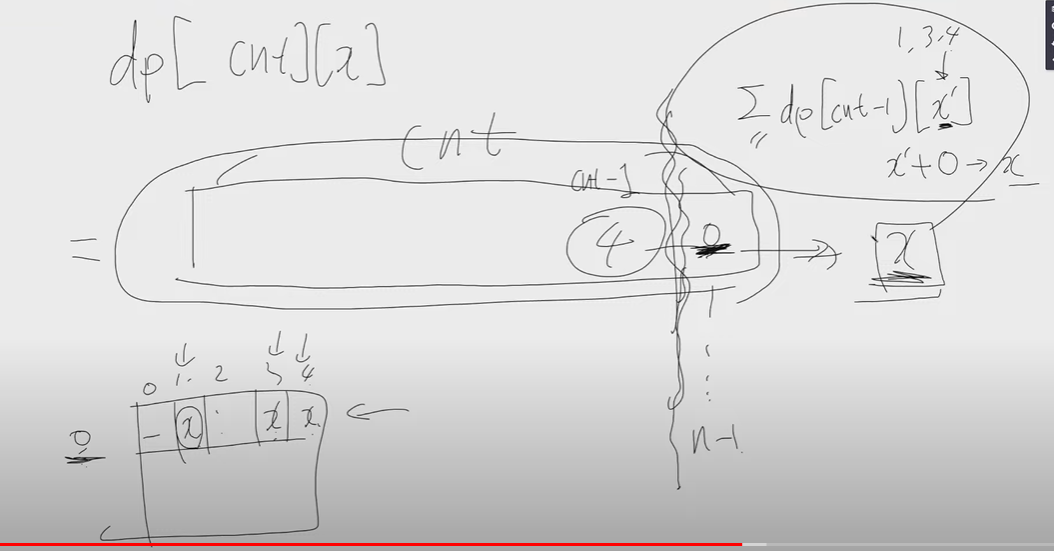 dp[cnt][x]
1, 3, 4
Σ dp[cnt-1][x']
x'+0→x
cnt
cnt-1
=
4
0
x
1
n-1
0 1 2 3 4
0
- x x x